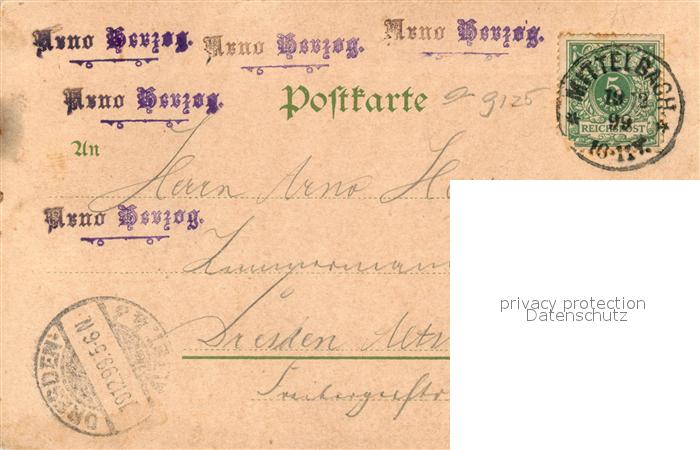 Arno Herzog.
Arno Herzog.
Arno Herzog.
Arno Herzog.
Postkarte
9125
5
REICHSPOST
MITTELBACH
19 12
99
10-11V.
An
Herrn Arno
Arno Herzog.
privacy protection
Datenschutz
Dresden
DRESDEN-ALTST.
19.12.99.5-6N